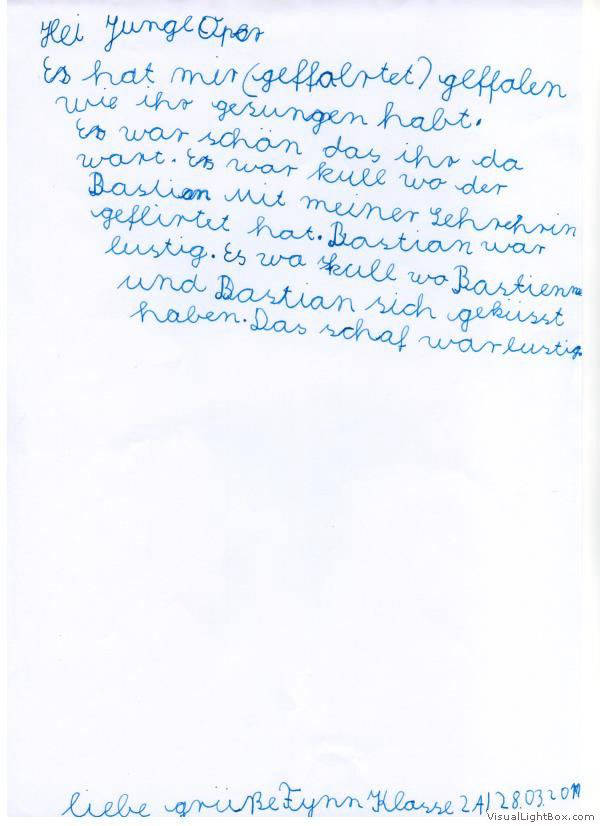 Hei Junge Oper
Es hat mir (geffalrtet) geffalen
wie ihr gesungen habt.
Es war schön das ihr da
wart. Es war kull wo der
Bastian Mit meiner Lehrehrin
geflirtet hat. Bastian war
lustig. Es wa kull wo Bastienne
und Bastian sich geküsst
haben. Das schaf war lustig.
liebe grüße Fynn Klasse 2A/28.03.2011
VisualLightBox.com